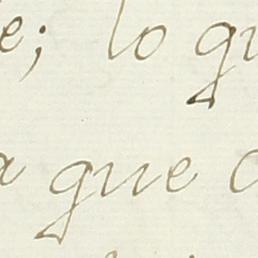 e; lo qu
a que c